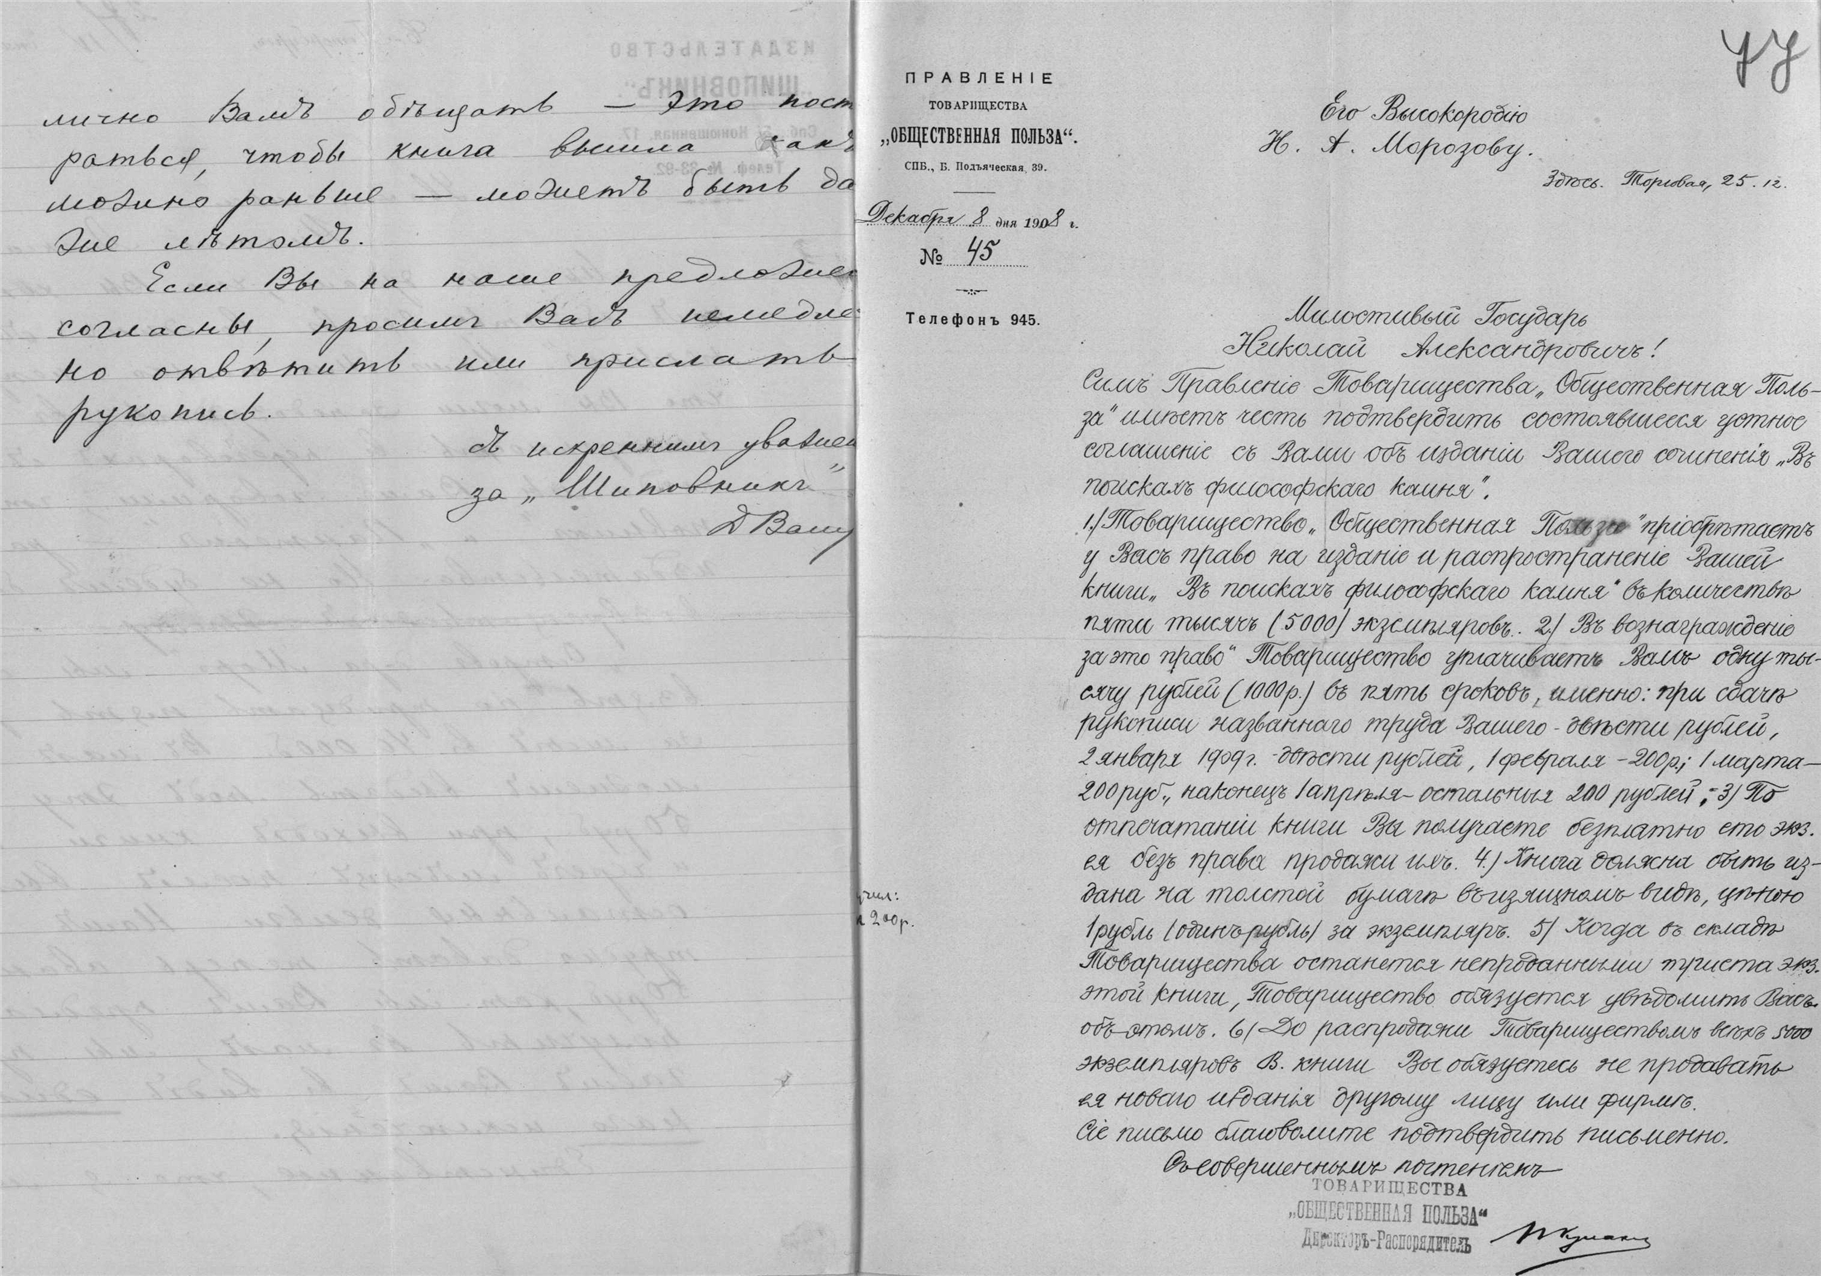 лично Вамъ обѣщать — это пост
раться, чтобы книга вышла какъ
можно раньше — можетъ быть да
же лѣтомъ.
Если Вы на наше предложен
согласны, просимъ Васъ немедле
но отвѣтить или прислать
рукопись.
съ искреннимъ уважен
за „Шиповникъ"
ПРАВЛЕНІЕ
ТОВАРИЩЕСТВА
„ОБЩЕСТВЕННАЯ ПОЛЬЗА“.
СПБ., Б. Подъяческая 39.
Декабря 8 дня 1908 г.
№ 45
Телефонъ 945.
чил:
200р.
Его Высокородію
Н. А. Морозову.
Здѣсь. Торговая, 25. 12.
Милостивый Государь
Николай Александровичъ!
Симъ Правленіе Товарищества „Общественная Поль-
за" имѣетъ честь подтвердить состоявшееся устное
соглашеніе съ Вами объ изданіи Вашего сочиненія „Въ
поискахъ философскаго камня".
1) Товарищество „Общественная Польза" пріобрѣтаетъ
у Васъ право на изданіе и распространеніе Вашей
книги „Въ поискахъ философскаго камня" въ количествѣ
пяти тысячъ (5000) экземпляровъ. 2) Въ вознагражденіе
за это право Товарищество уплачиваетъ Вамъ одну ты-
сячу рублей (1000р.) въ пять сроковъ, именно: при сдачѣ
рукописи названнаго труда Вашего - двѣсти рублей,
2 января 1909г. - двѣсти рублей, 1 февраля - 200р.; 1 марта -
200 руб., наконецъ 1 апрѣля - остальныя 200 рублей; - 3) По
отпечатаніи книги Вы получаете безплатно сто экз.
ея безъ права продажи ихъ. 4) Книга должна быть из-
дана на толстой бумагѣ въ изящномъ видѣ, цѣною
1 рубль (одинъ рубль) за экземпляръ. 5) Когда въ складѣ
Товарищества останется непроданными триста экз.
этой книги, Товарищество обязуется увѣдомить Васъ
объ этомъ. 6) До распродажи Товариществомъ всѣхъ 5000
экземпляровъ В. книги Вы обязуетесь не продавать
ея новаго изданія другому лицу или фирмѣ.
Сіе письмо благоволите подтвердить письменно.
Съ совершеннымъ почтеніемъ
ТОВАРИЩЕСТВА
„ОБЩЕСТВЕННАЯ ПОЛЬЗА“
Директоръ-Распорядитель